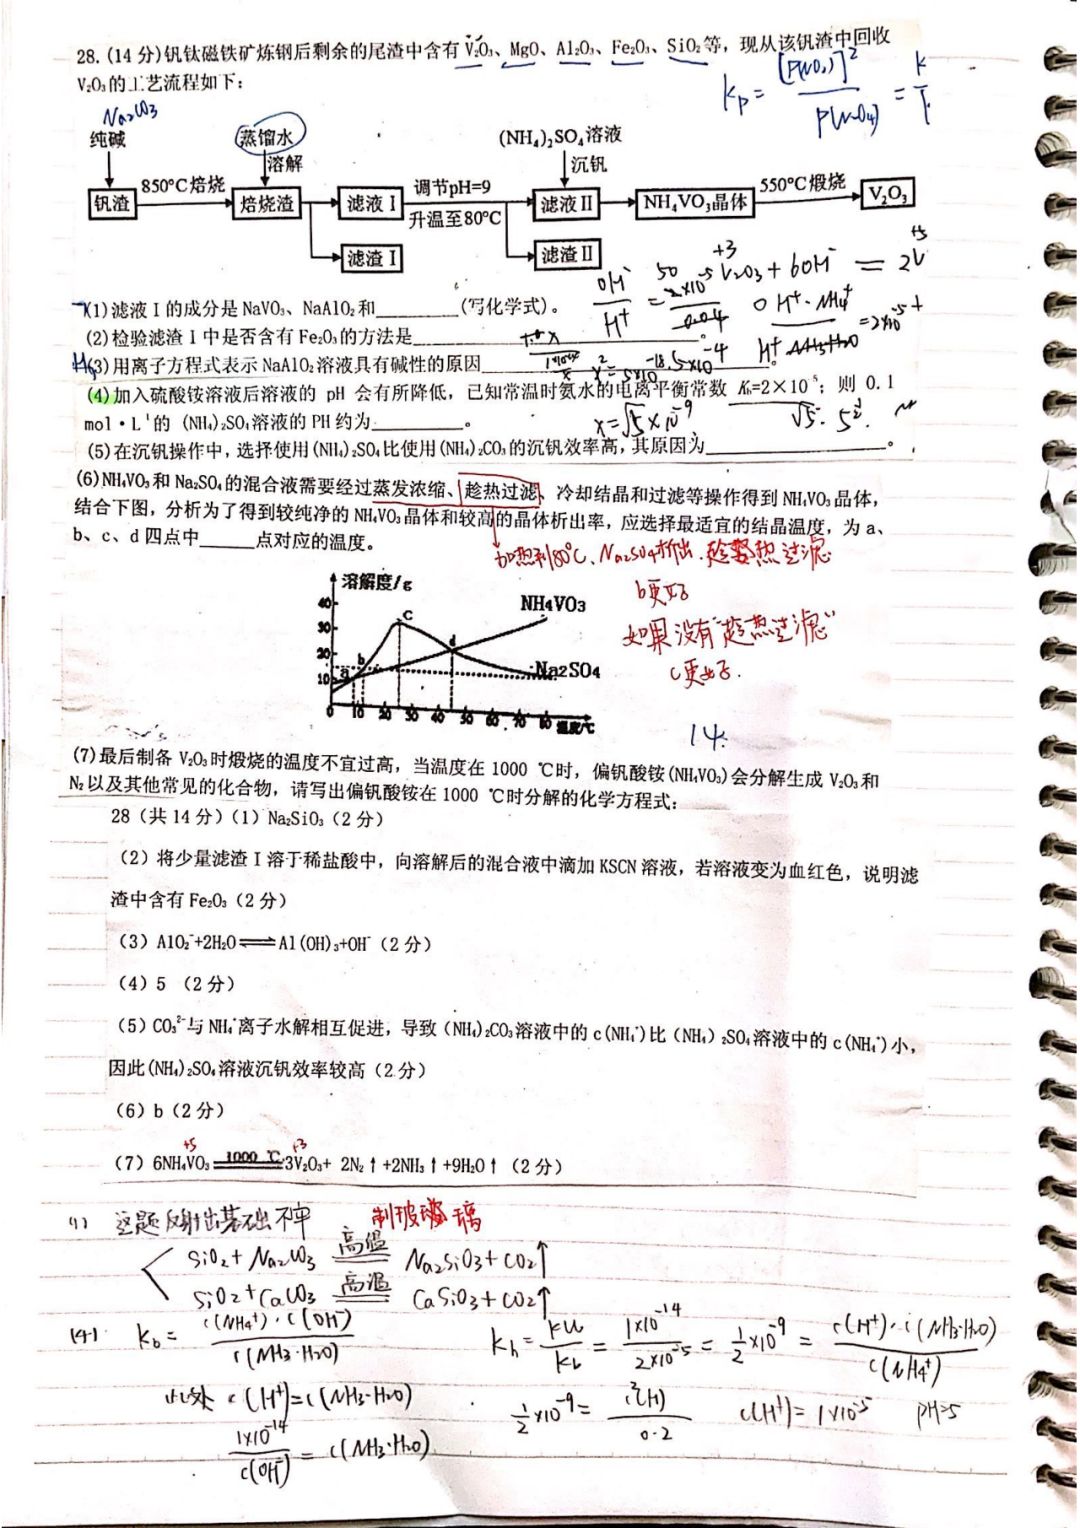 28.(14 分)钒钛磁铁矿炼钢后剩余的尾渣中含有 V₂O₃、MgO、Al₂O₃、Fe₂O₃、SiO₂等，现从该钒渣中回收
V₂O₃的工艺流程如下：
Kp= [P(NO₂)]² / P(N₂O₄) = K
Na₂CO₃
纯碱
蒸馏水
溶解
(NH₄)₂SO₄溶液
沉钒
钒渣 850℃焙烧 焙烧渣 滤液Ⅰ 调节pH=9 升温至80℃ 滤液Ⅱ NH₄VO₃晶体 550℃煅烧 V₂O₃
滤渣Ⅰ 滤渣Ⅱ
+3 +5
V₂O₃+6OH⁻ = 2V
(1)滤液Ⅰ的成分是 NaVO₃、NaAlO₂和________(写化学式)。
(2)检验滤渣Ⅰ中是否含有 Fe₂O₃的方法是________。
(3)用离子方程式表示 NaAlO₂溶液具有碱性的原因________。
(4)加入硫酸铵溶液后溶液的 pH 会有所降低，已知常温时氨水的电离平衡常数 K_b=2×10⁻⁵；则 0.1
mol·L⁻¹的 (NH₄)₂SO₄溶液的 PH 约为________。
x=√5×10⁻⁹
(5)在沉钒操作中,选择使用(NH₄)₂SO₄比使用(NH₄)₂CO₃的沉钒效率高,其原因为________。
(6)NH₄VO₃和 Na₂SO₄的混合液需要经过蒸发浓缩、趁热过滤、冷却结晶和过滤等操作得到 NH₄VO₃晶体,
结合下图，分析为了得到较纯净的 NH₄VO₃晶体和较高的晶体析出率，应选择最适宜的结晶温度，为 a、
b、c、d 四点中____点对应的温度。
加热到80℃、Na₂SO₄析出.趁热过滤
b更好
如果没有"趁热过滤"
c更好.
溶解度/g
40
30
20
10
0 10 20 30 40 50 60 70 80 温度/℃
a b c d
NH4VO3
Na2SO4
14.
(7)最后制备 V₂O₃时煅烧的温度不宜过高，当温度在 1000 ℃时，偏钒酸铵(NH₄VO₃)会分解生成 V₂O₃和
N₂以及其他常见的化合物，请写出偏钒酸铵在 1000 ℃时分解的化学方程式：
28（共 14 分）（1）Na₂SiO₃（2 分）
（2）将少量滤渣Ⅰ溶于稀盐酸中，向溶解后的混合液中滴加 KSCN 溶液，若溶液变为血红色，说明滤
渣中含有 Fe₂O₃（2 分）
（3）AlO₂⁻+2H₂O⇌Al(OH)₃+OH⁻（2 分）
（4）5 （2 分）
（5）CO₃²⁻与 NH₄⁺离子水解相互促进，导致（NH₄)₂CO₃溶液中的 c(NH₄⁺)比（NH₄）₂SO₄溶液中的 c(NH₄⁺)小，
因此(NH₄)₂SO₄溶液沉钒效率较高（2 分）
（6）b（2 分）
+5 +3
（7）6NH₄VO₃ =1000 ℃= 3V₂O₃+ 2N₂↑+2NH₃↑+9H₂O↑（2 分）
(1) 这题反射出基础不牢 制玻璃
SiO₂+Na₂CO₃ =高温= Na₂SiO₃+CO₂↑
SiO₂+CaCO₃ =高温= CaSiO₃+CO₂↑
(4) K_b= c(NH₄⁺)·c(OH⁻) / c(NH₃·H₂O) K_h= Kw/K_b = 1×10⁻¹⁴ / 2×10⁻⁵ = 1/2×10⁻⁹ = c(H⁺)·c(NH₃·H₂O) / c(NH₄⁺)
此处 c(H⁺)=c(NH₃·H₂O) 1/2×10⁻⁹= c²(H) / 0.2 c(H⁺)=1×10⁻⁵ pH=5
1×10⁻¹⁴ / c(OH⁻) = c(NH₃·H₂O)